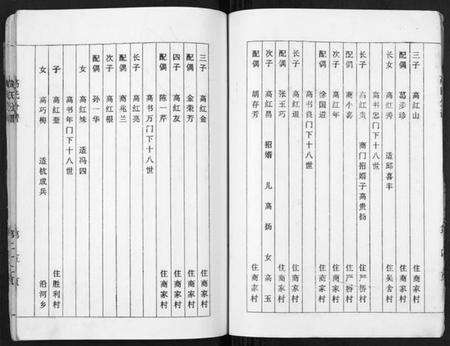 三子 高红山 住商家村
配偶 葛步珍
女 高红秀 适邱喜丰 住吴舍村
高书宽门下十八世
长子 高红贵 商门招婿子高贵扬 住严桥村
配偶 商小喜
次子 高红年 住严桥村
配偶 徐国道 住商家村
高书良门下十八世
长子 高红道 住商家村
配偶 张玉巧
次子 高红昌 招婿 儿高扬 女高玉 住商家村
配偶 胡存芳
三子 高红金 住商家村
配偶 金秉芳
四子 高红友 住商家村
配偶 陈一芹
高书万门下十八世
长子 高红亮 住商家村
配偶 商兆兰
次子 高红根 住商家村
配偶 孙一华
女 高红妹 适冯四
高书年门下十八世
子 高红奎 住胜利村
女 高巧梅 适杭成兵 沿河乡